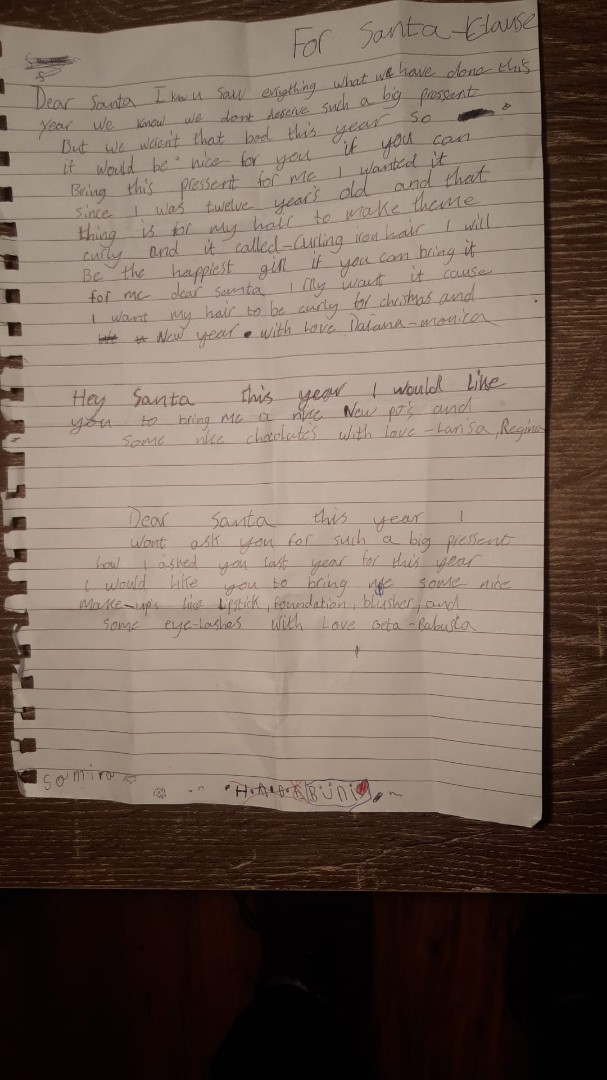 For Santa-Clause
Dear Santa I know u saw enigthing what we have done this
year we know we dont deserve such a big pressent
But we weren't that bad this year so
it would be nice for you if you can
Bring this pressent for me I wanted it
since I was twelve year's old and that
thing is for my hair to make theme
curly and it called-Curling iron hair I will
Be the happiest girl if you can bring it
for me dear santa I rlly want it cause
I want my hair to be curly for chrismas and
New year. with Love Daiana-monica
Hey Santa this year I would Like
you to bring me a nice New pj's and
some nice choclate's with love-Larisa,Regina
Dear Santa this year I
Wont ask you for such a big pressent
how I asked you last year for this year
I would like you to bring me some nice
Make-ups like Lipstick, foundation, blusher, and
some eye-lashes with Love Geta-Babusca
Somira
BÜni